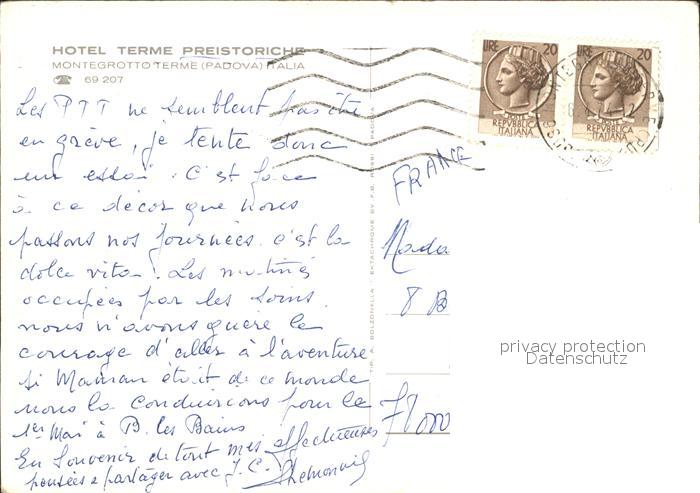 HOTEL TERME PREISTORICHE
MONTEGROTTO TERME (PADOVA) ITALIA
☎ 69 207
Les PTT ne semblent pas être
en grève, je tente donc
un essai. C'est face
à ce décor que nous
passons nos journées. c'est la
dolce vita. Les matinées
occupées par les soins.
nous n'avons guère le
courage d'aller à l'aventure
Si Maman était de ce monde
nous la conduirions pour le
1er Mai à B. les Bains
En souvenir de tout mes affectueuses
pensées à partager avec J. C.
LIRE 20
REPVBBLICA
ITALIANA
LIRE 20
REPVBBLICA
ITALIANA
FRANCE
Mada
8 B
EKTACHROME BY F.B. ROSSI - PADOVA
privacy protection
Datenschutz